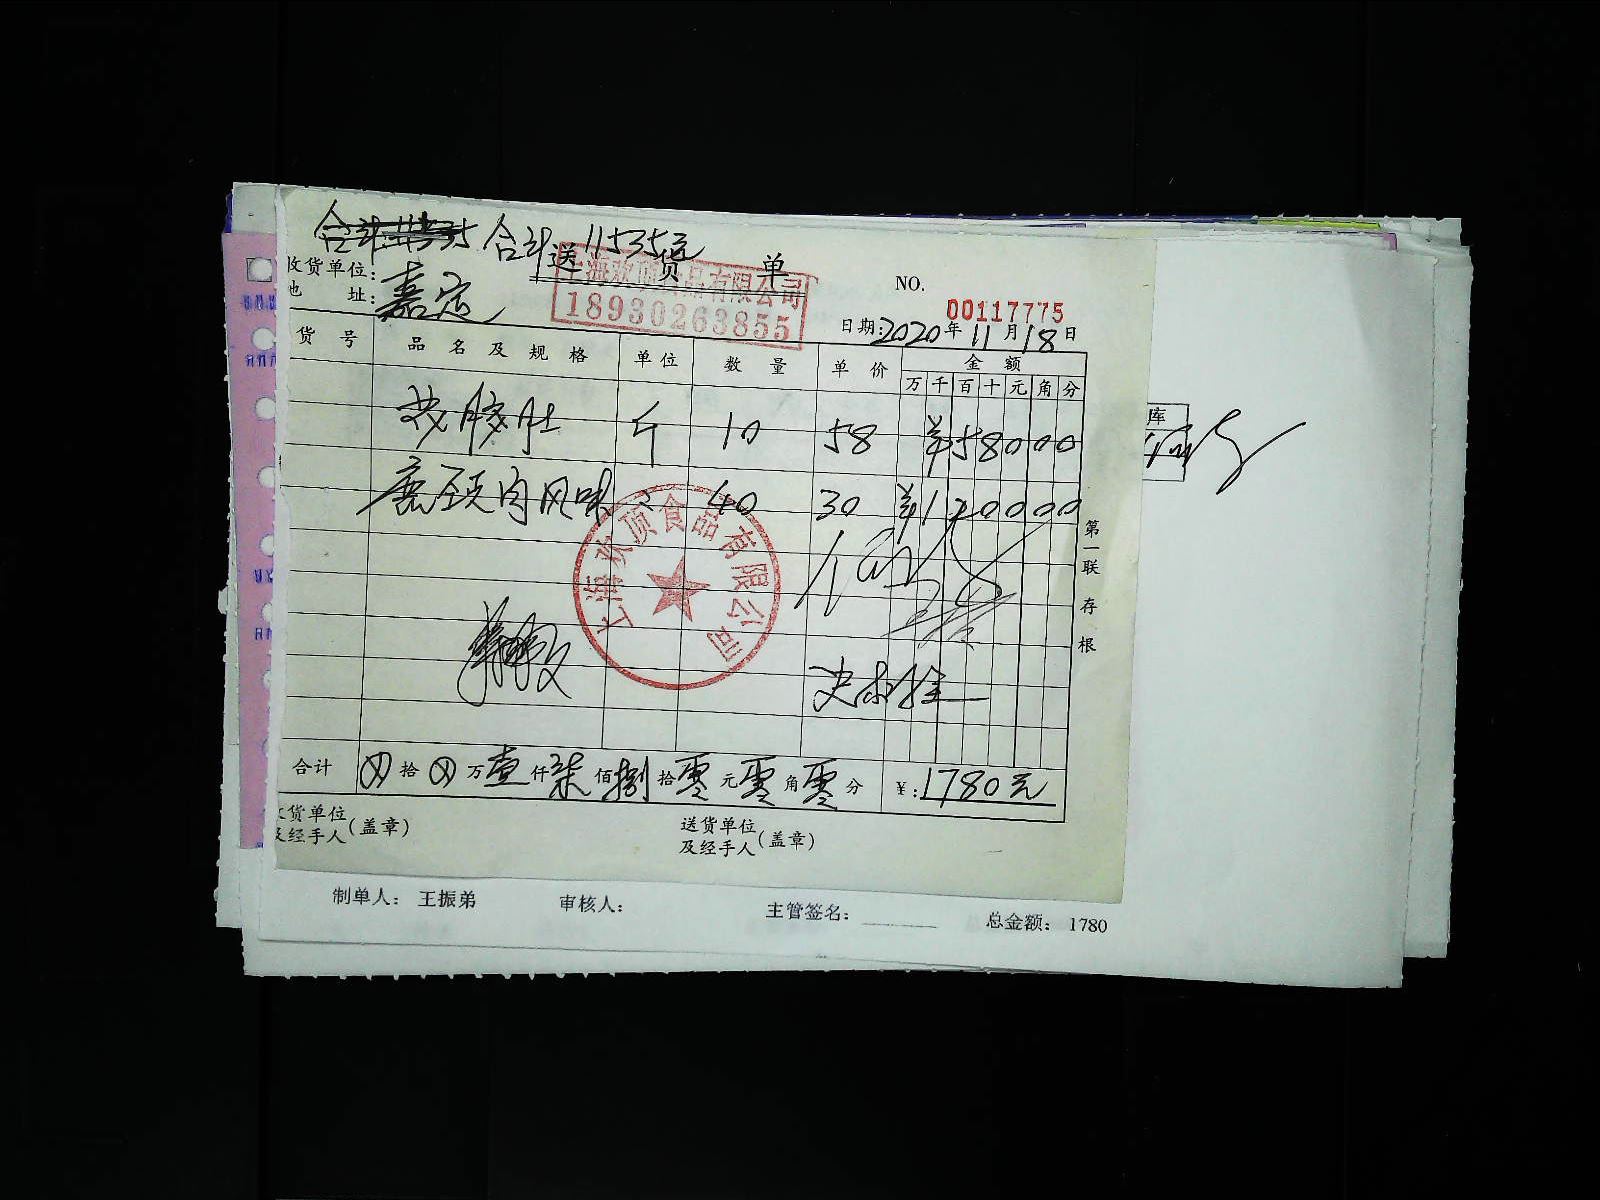 合计 合计11535元
送货单
收货单位:
地 址: 嘉定
上海欢顶食品有限公司
18930263855
NO.
00117775
日期:2020年11月18日
货号 品名及规格 单位 数量 单价 金额
万 千 百 十 元 角 分
胶肚 斤 10 58 ¥58000
肉风味 40 30 ¥120000
上海欢顶食品有限公司
第一联 存根
库
合计 ⊗拾⊗万壹仟柒佰捌拾零元零角零分 ¥:1780元
收货单位
及经手人(盖章)
送货单位
及经手人(盖章)
制单人: 王振弟 审核人: 主管签名: 总金额: 1780